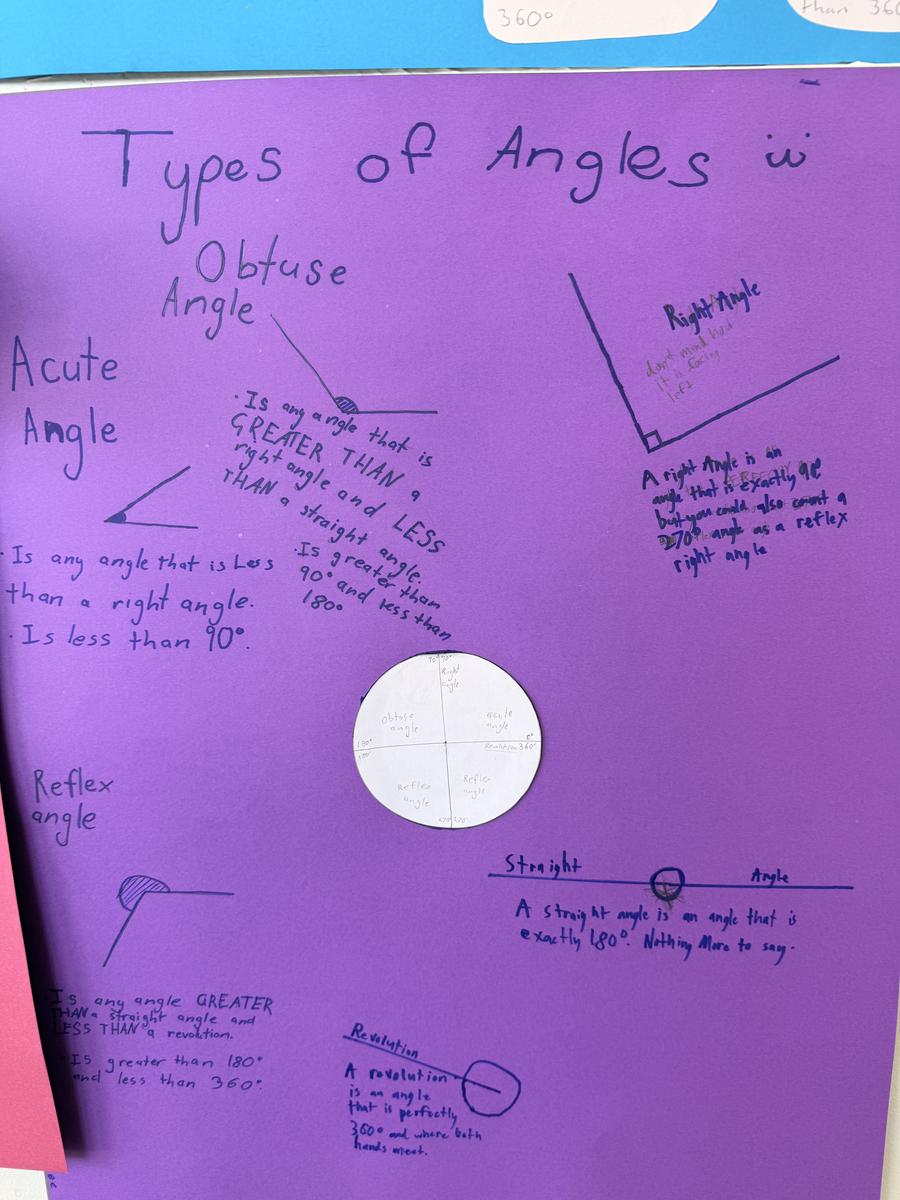 360°
than 360
Types of Angles
Obtuse
Angle
Acute
Angle
· Is any angle that is
GREATER THAN a
right angle and LESS
THAN a straight angle.
· Is greater than
90° and less than
180°
· Is any angle that is Less
than a right angle.
· Is less than 90°.
Right Angle
don't mind how
it is facing
left
A right Angle is an
angle that is exactly 90°
but you could also count a
270° angle as a reflex
right angle
90° 90°
Right
angle
Obtuse
angle
acute
angle
180°
180°
0°
Revolution 360°
Reflex
angle
Reflex
angle
270° 270°
Reflex
angle
· Is any angle GREATER
THAN a straight angle and
LESS THAN a revolution.
· Is greater than 180°
and less than 360°.
Straight Angle
A straight angle is an angle that is
exactly 180°. Nothing More to say.
Revolution
A revolution
is an angle
that is perfectly
360° and where both
hands meat.